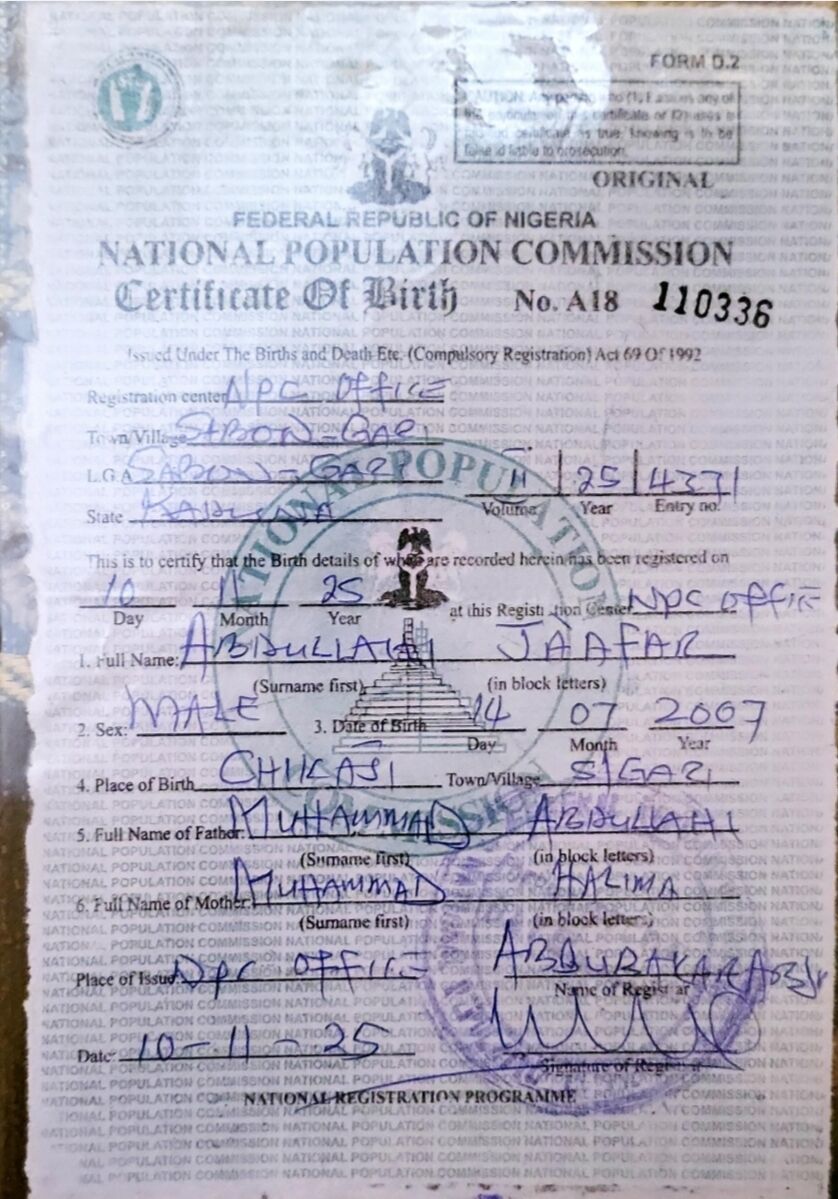 FORM D.2
CAUTION: Any person who (1) any of
the of this certificate or (2) uses a
certificate as true, knowing it to be
false is liable to prosecution.
ORIGINAL
FEDERAL REPUBLIC OF NIGERIA
NATIONAL POPULATION COMMISSION
Certificate Of Birth No. A18 110336
Issued Under The Births and Death Etc. (Compulsory Registration) Act 69 Of 1992
Registration center NPC OFFICE
Town/Village SABON-GARI
L.G.A SABON-GARI 11 25 4371
Volume Year Entry no.
State KADUNA
This is to certify that the Birth details of which are recorded herein has been registered on
10 11 25 at this Registration Center NPC OFFICE
Day Month Year
1. Full Name: ABDULLAHI JAAFAR
(Surname first) (in block letters)
2. Sex: MALE 3. Date of Birth 14 07 2007
Day Month Year
4. Place of Birth CHIKAJI Town/Village S/GARI
5. Full Name of Father: MUHAMMAD ABDULLAHI
(Surname first) (in block letters)
6. Full Name of Mother: MUHAMMAD HALIMA
(Surname first) (in block letters)
Place of Issue NPC OFFICE
Name of Registrar
Date: 10-11-25
Signature of Registrar
NATIONAL REGISTRATION PROGRAMME